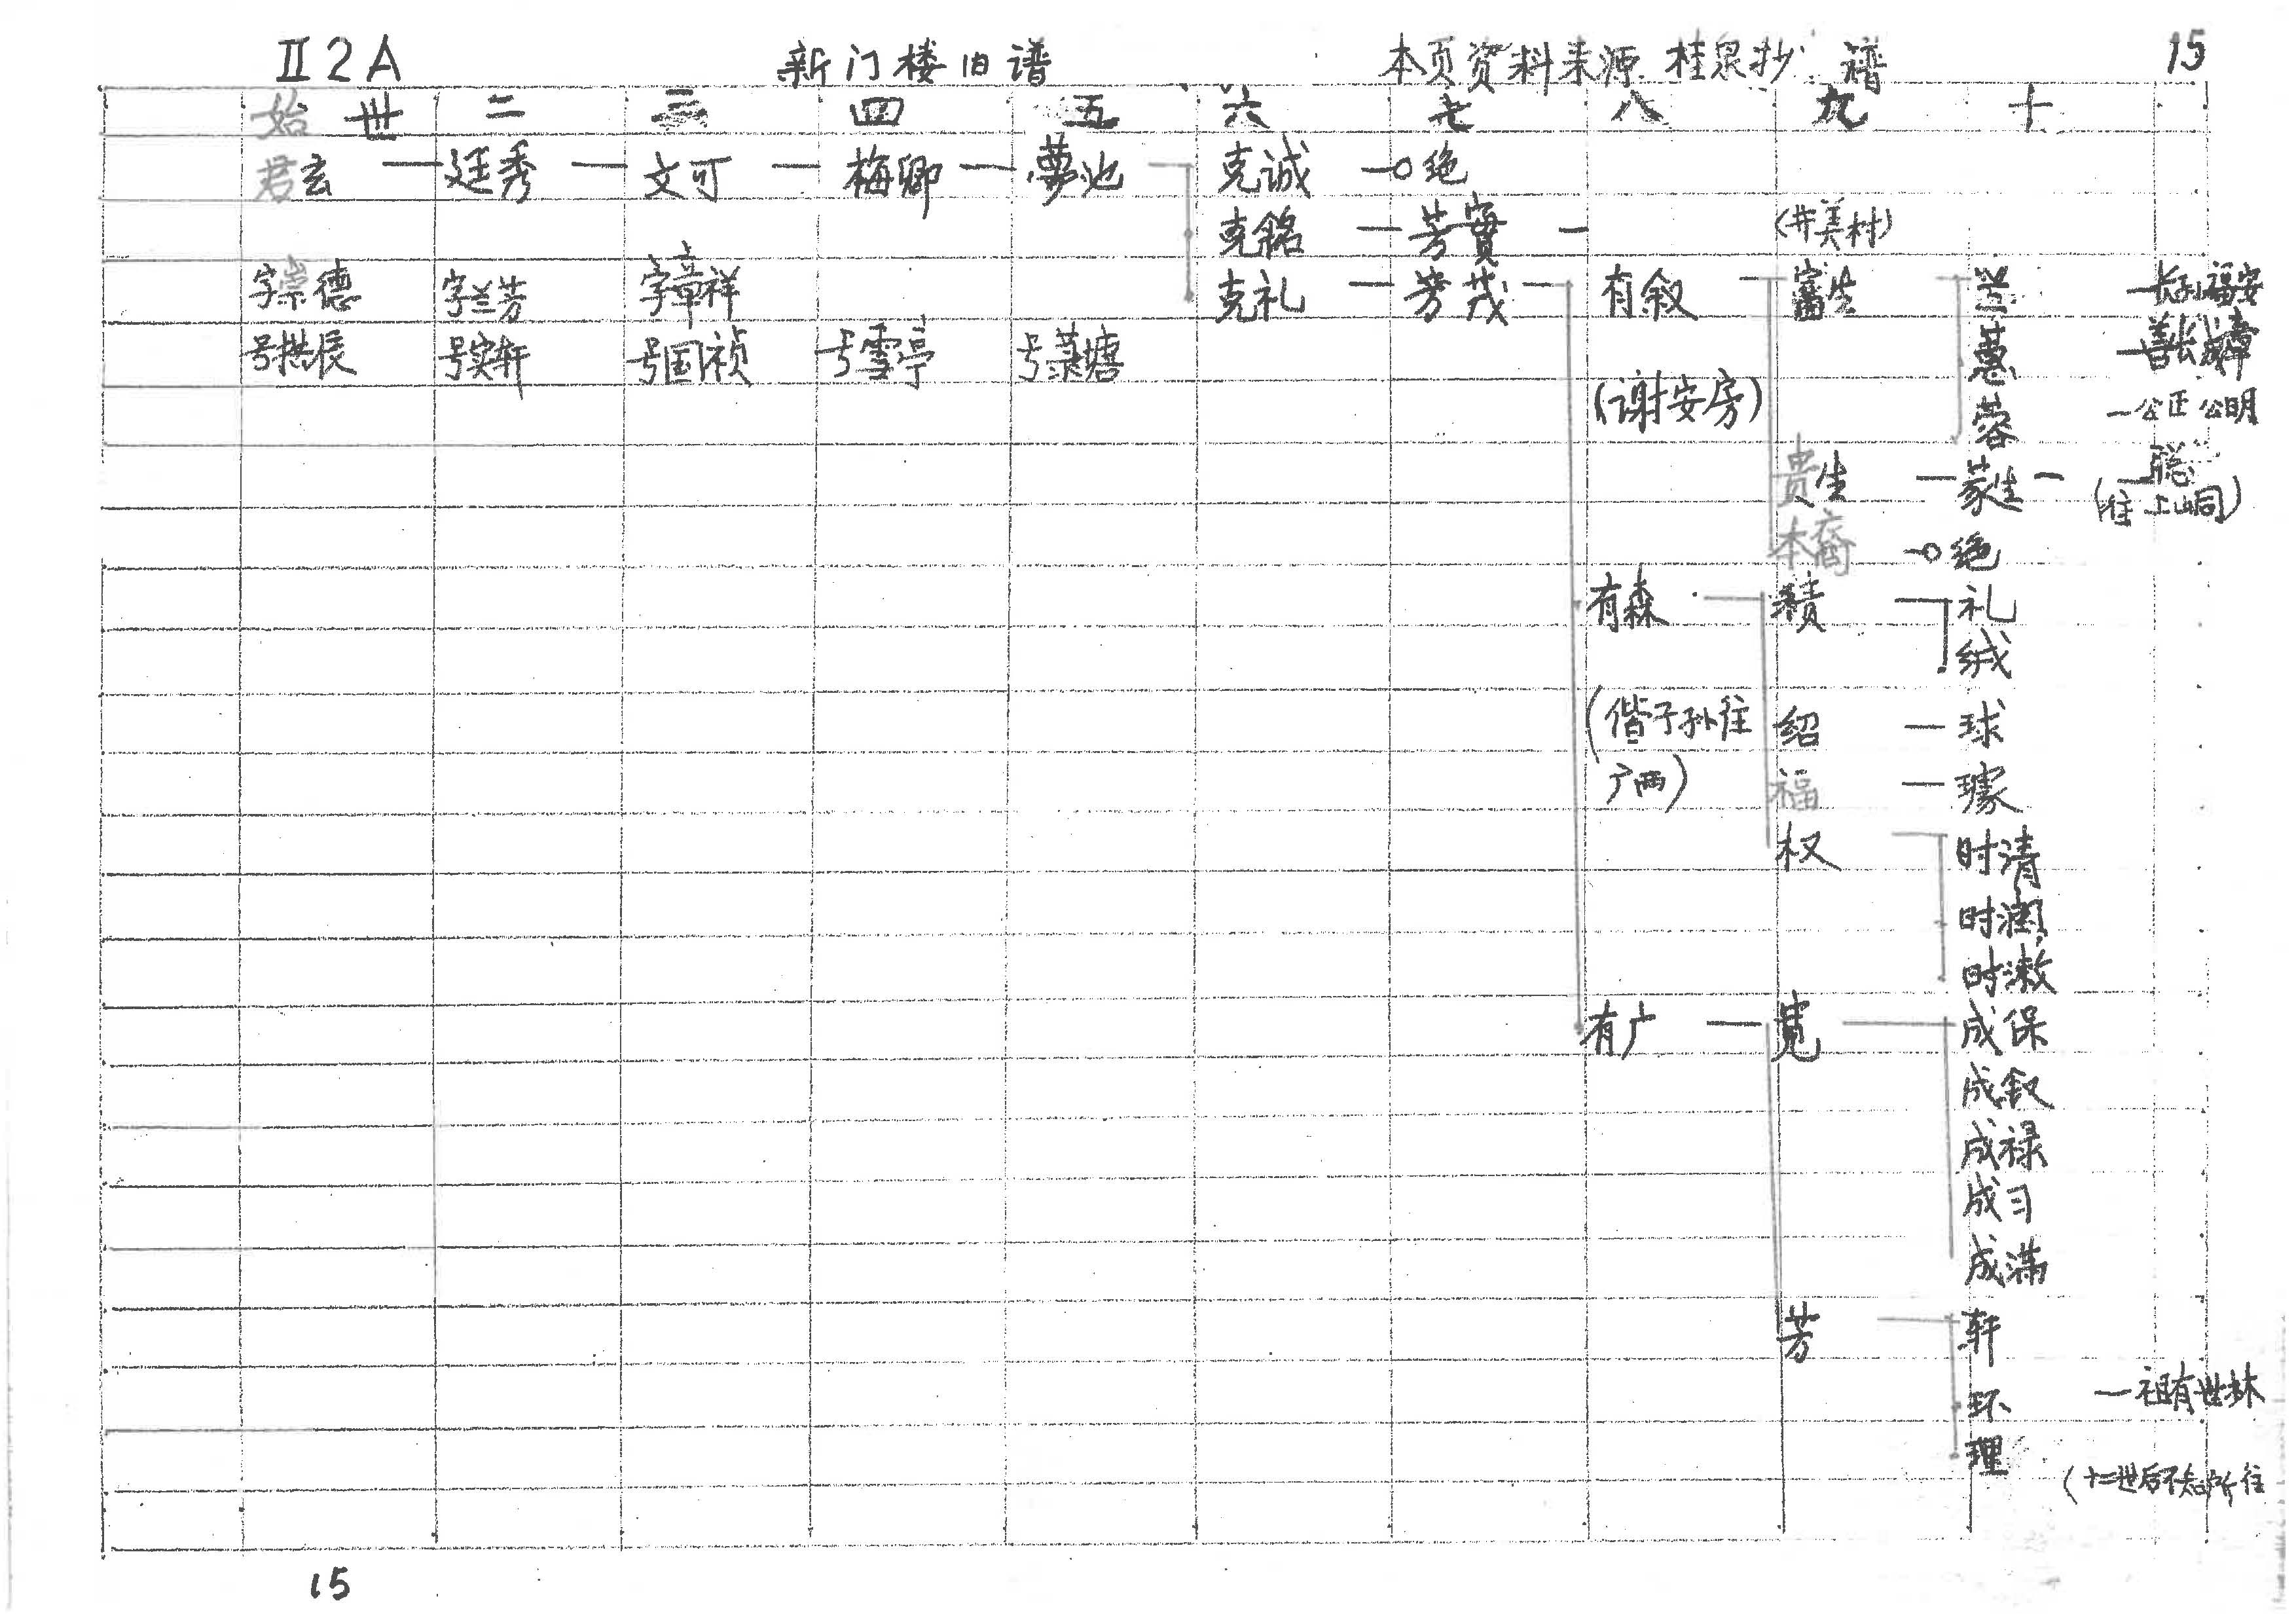 Ⅱ2A 新门楼旧谱 本页资料来源 桂泉抄 谱 15
始世 二 三 四 五 六 七 八 九 十
君玄 — 廷秀 — 文可 — 梅卿 — 夢池 克诚 —o 绝
克銘 — 芳實 — (井美村)
字崇德 字兰芳 字章祥 克礼 — 芳茂 — 有叙 富生 兰 —长子福安
号拱辰 号实轩 号国祯 号雪亭 号菉塘 蕙
(谢安房) 蓉 —公正 公明
贵生 — 蒙生 — 聪
(往上山峒)
本裔 —o 绝
有森 积 礼
绒
(偕子孙往 绍 — 球
广西) 福 — 璩
权 时清
时润
时漱
有广 — 宽 成保
成叙
成禄
成习
成满
芳 轩
环 —祖有世林
理
(十二世后不知所往
15